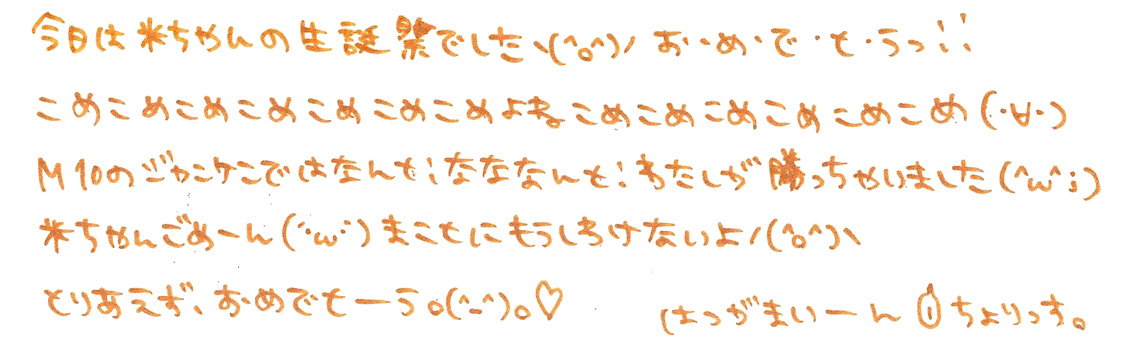 今日は米ちゃんの生誕祭でしたヽ(^o^)ノ お・め・で・と・うっ!!
こめこめこめこめこめこめこめよねこめこめこめこめこめこめ(・∀・)
M10のジャンケンではなんと!なななんと!わたしが勝っちゃいました(^ω^;)
米ちゃんごめーん(´・ω・`)まことにもうしわけないよ/(^o^)\
とりあえず、おめでとーう。(^-^)。♡
はつがまいーん ちょりっす。